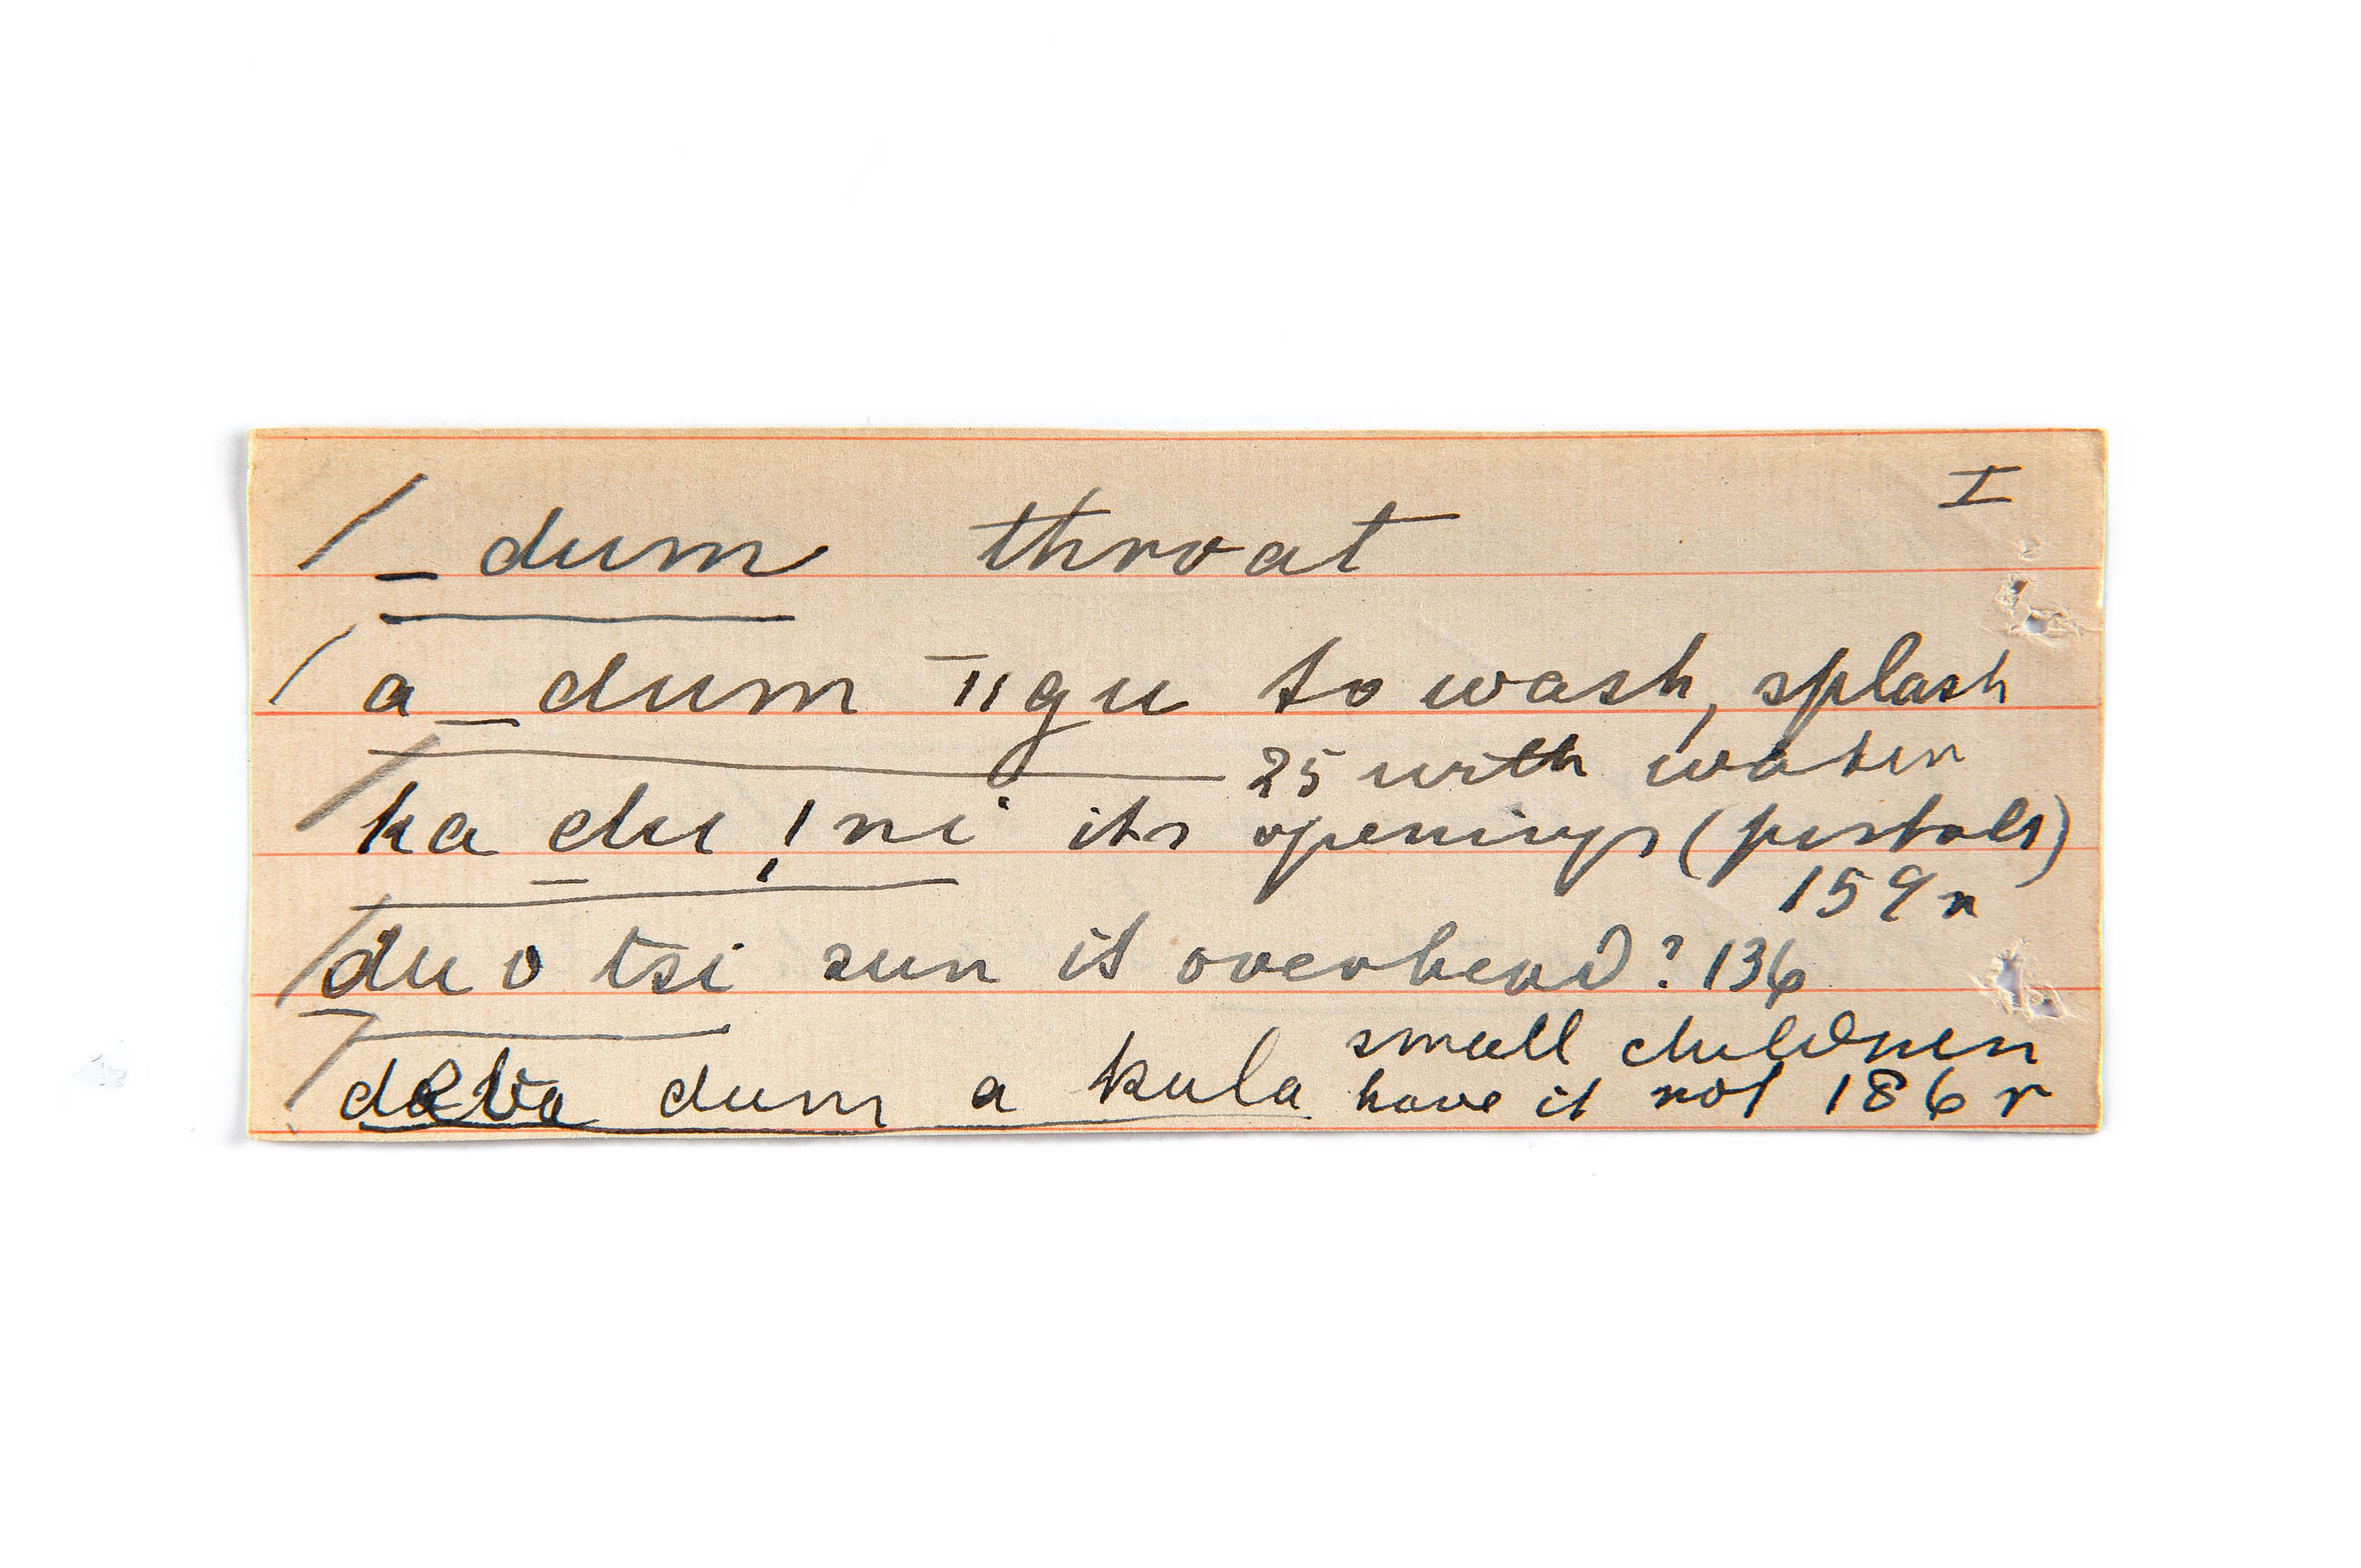 I
_ dum throat
a _ dum ̅ıı gu to wash, splash
25 with water
ka du !ni its openings (pistols)
159 r
du o tsi sun it overhead? 136
small children
dum a kula have it not 186 r